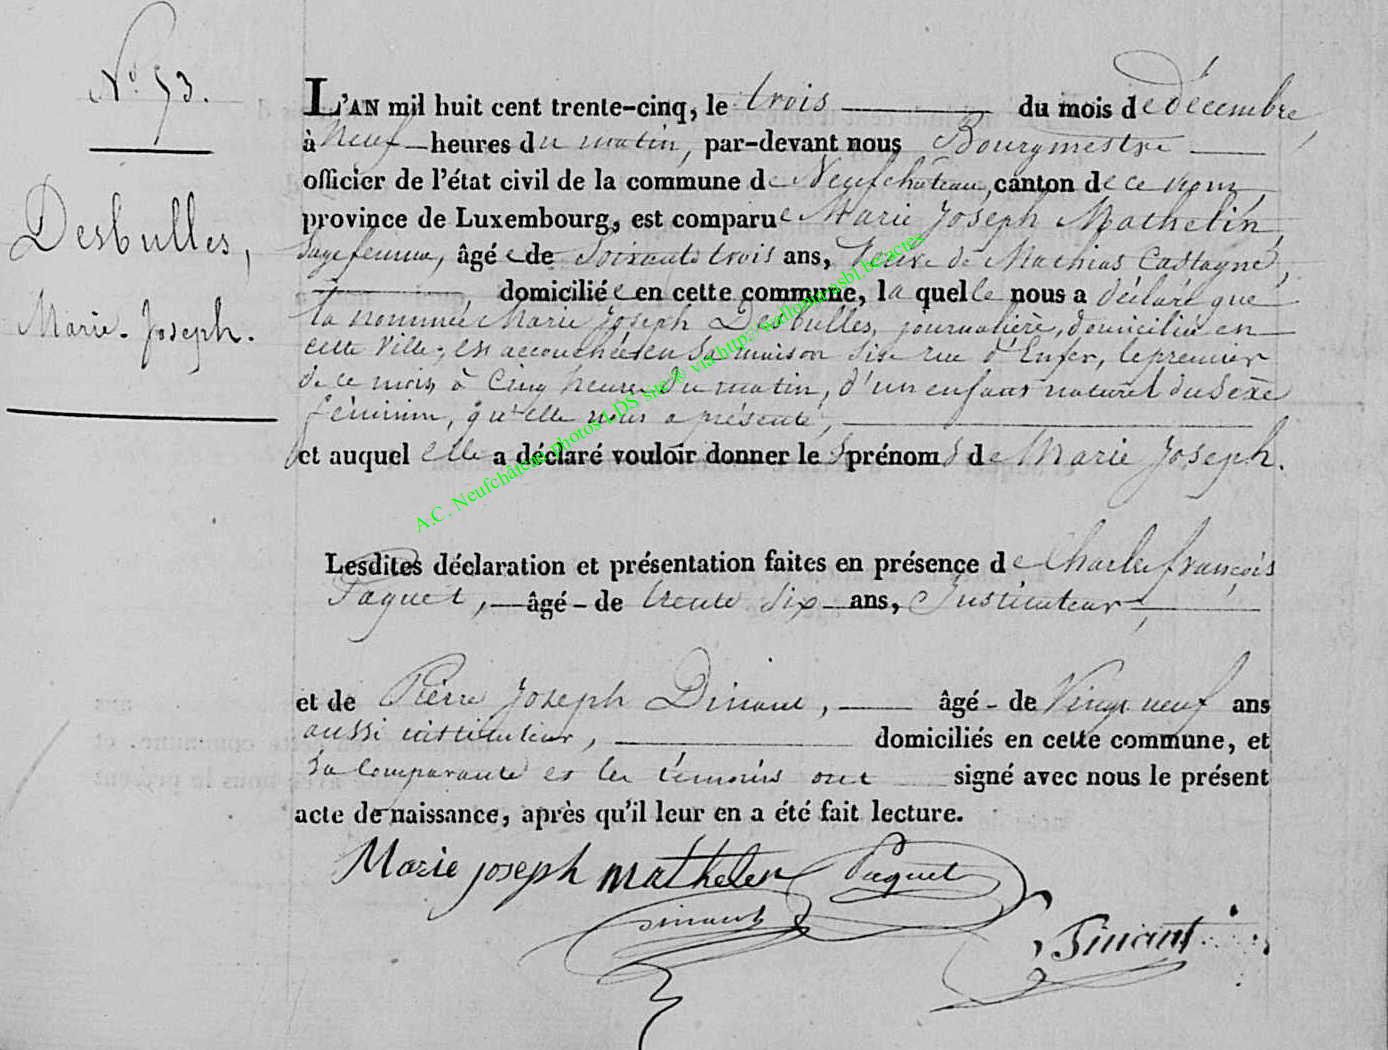 N° 53.
Desbulles,
Marie-Joseph.
L'AN mil huit cent trente-cinq, le trois du mois de décembre,
à neuf heures du matin, par-devant nous Bourgmestre
officier de l'état civil de la commune de Neufchâteau, canton de ce nom,
province de Luxembourg, est comparue Marie Joseph Mathelin,
Sagefemme, âgée de Soixante trois ans, Veuve de Mathias Castagne,
domiciliée en cette commune, la quelle nous a déclaré que
la nommée Marie Joseph Desbulles, journalière, domiciliée en
cette Ville, est accouchée en Sa maison Sise rue d'Enfer, le premier
de ce mois, à Cinq heures du matin, d'un enfant naturel du Sexe
féminin, qu'elle nous a présenté,
et auquel elle a déclaré vouloir donner les prénoms de Marie Joseph.
Lesdites déclaration et présentation faites en présence de Charles françois
Paquet, âgé de trente Six ans, Instituteur,
et de Pierre Joseph Dinant, âgé de Vingt neuf ans
aussi instituteur, domiciliés en cette commune, et
la Comparante et les témoins ont signé avec nous le présent
acte de naissance, après qu'il leur en a été fait lecture.
Marie joseph mathelin Paquet
Dinant
Tinant
A.C. Neufchâteau photos LDS site @ via http://wallonia-asbl.be/actes